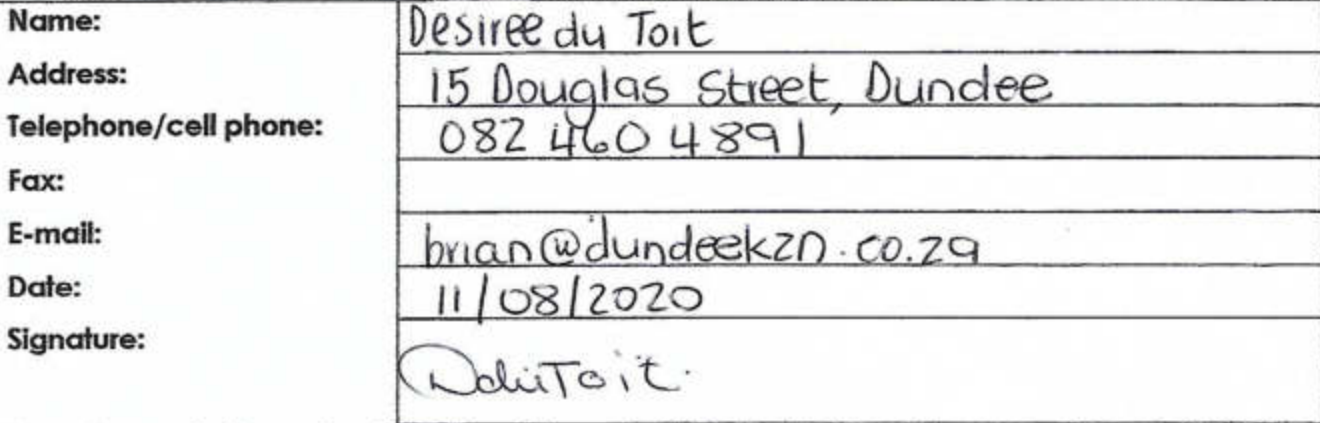 Name: Desiree du Toit
Address: 15 Douglas Street, Dundee
Telephone/cell phone: 082 460 4891
Fax:
E-mail: brian@dundeekzn.co.za
Date: 11/08/2020
Signature: DduToit.